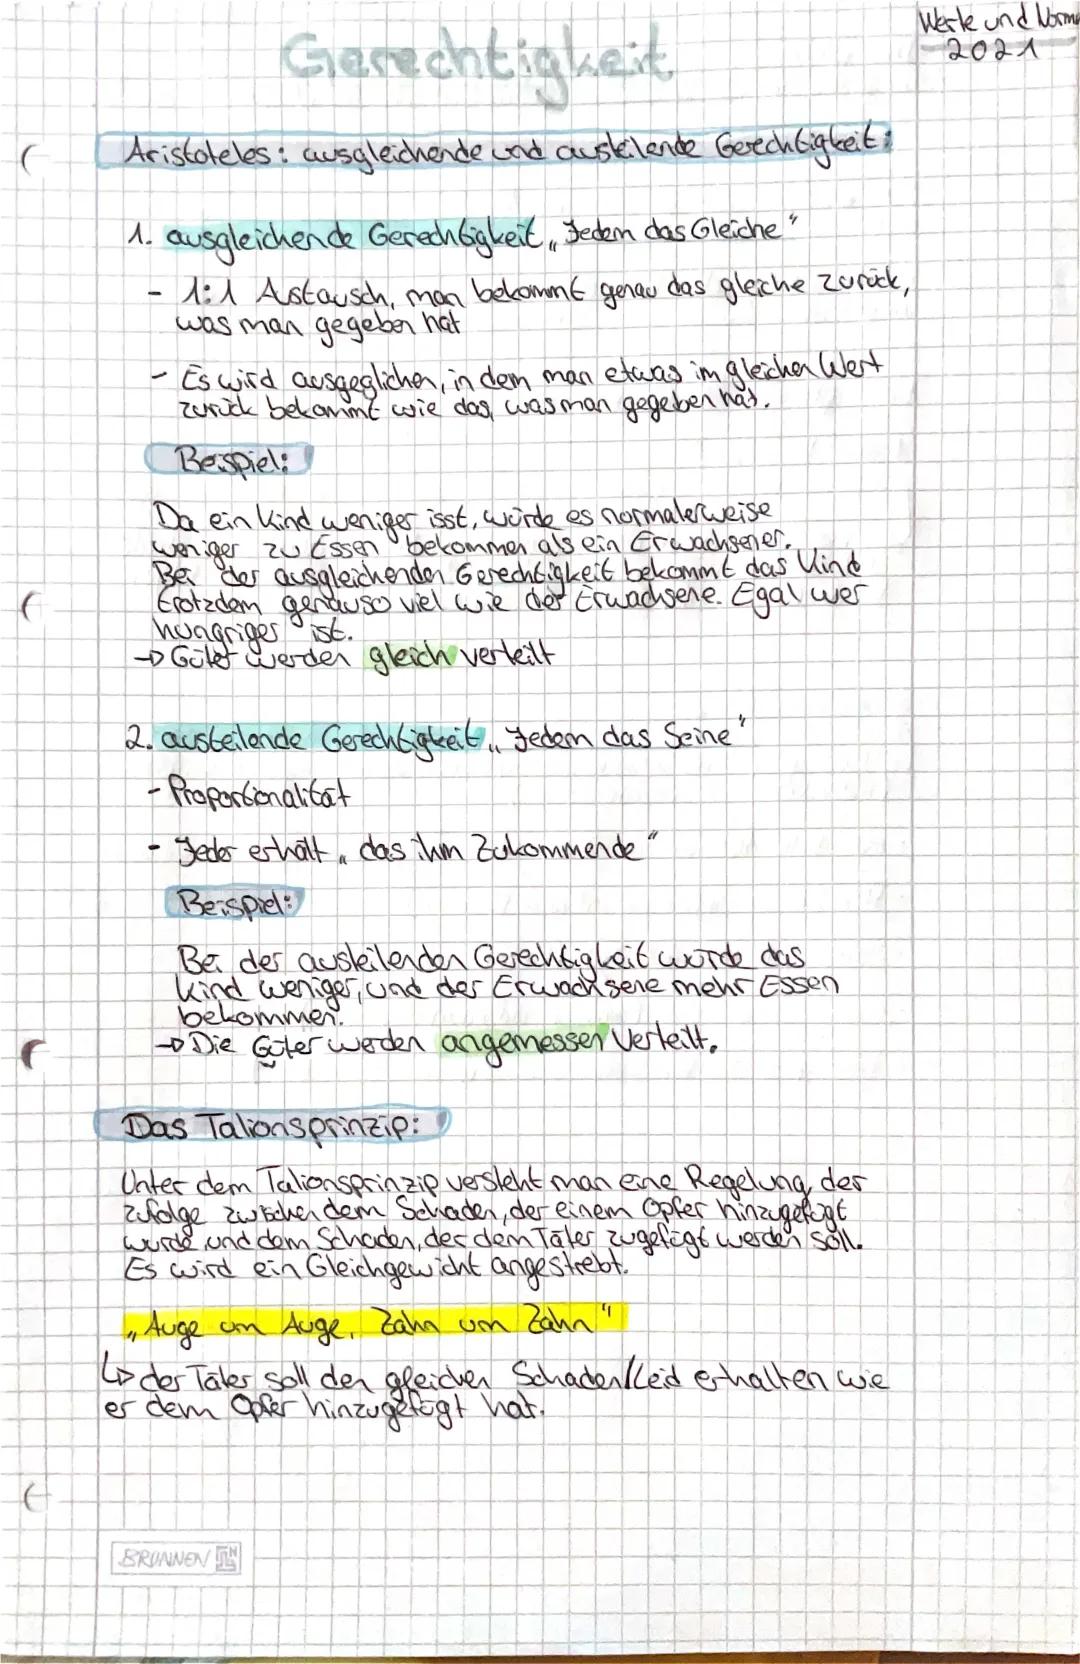 Werte und Norme
2021
Gerechtigkeit
Aristoteles: ausgleichende und austeilende Gerechtigkeit:
1. ausgleichende Gerechtigkeit „Jedem das Gleiche“
- 1:1 Austausch, man bekommt genau das gleiche zurück,
was man gegeben hat
- Es wird ausgeglichen, in dem man etwas im gleichen Wert
zurück bekommt wie das, was man gegeben hat.
Beispiel:
Da ein Kind weniger isst, würde es normalerweise
weniger zu Essen bekommen als ein Erwachsener.
Bei der ausgleichenden Gerechtigkeit bekommt das Kind
trotzdem genauso viel wie der Erwachsene. Egal wer
hungriger ist.
→ Güter werden gleich verteilt
2. austeilende Gerechtigkeit „Jedem das Seine“
- Proportionalität
- Jeder erhält „das ihm Zukommende“
Beispiel:
Bei der austeilenden Gerechtigkeit würde das
Kind weniger, und der Erwachsene mehr Essen
bekommen.
→ Die Güter werden angemessen verteilt.
Das Talionsprinzip:
Unter dem Talionsprinzip versteht man eine Regelung der
zufolge zwischen dem Schaden, der einem Opfer hinzugefügt
wurde und dem Schaden, der dem Täter zugefügt werden soll.
Es wird ein Gleichgewicht angestrebt.
„Auge um Auge, Zahn um Zahn“
↳ der Täter soll den gleichen Schaden/Leid erhalten wie
er dem Opfer hinzugefügt hat.
BRUNNEN